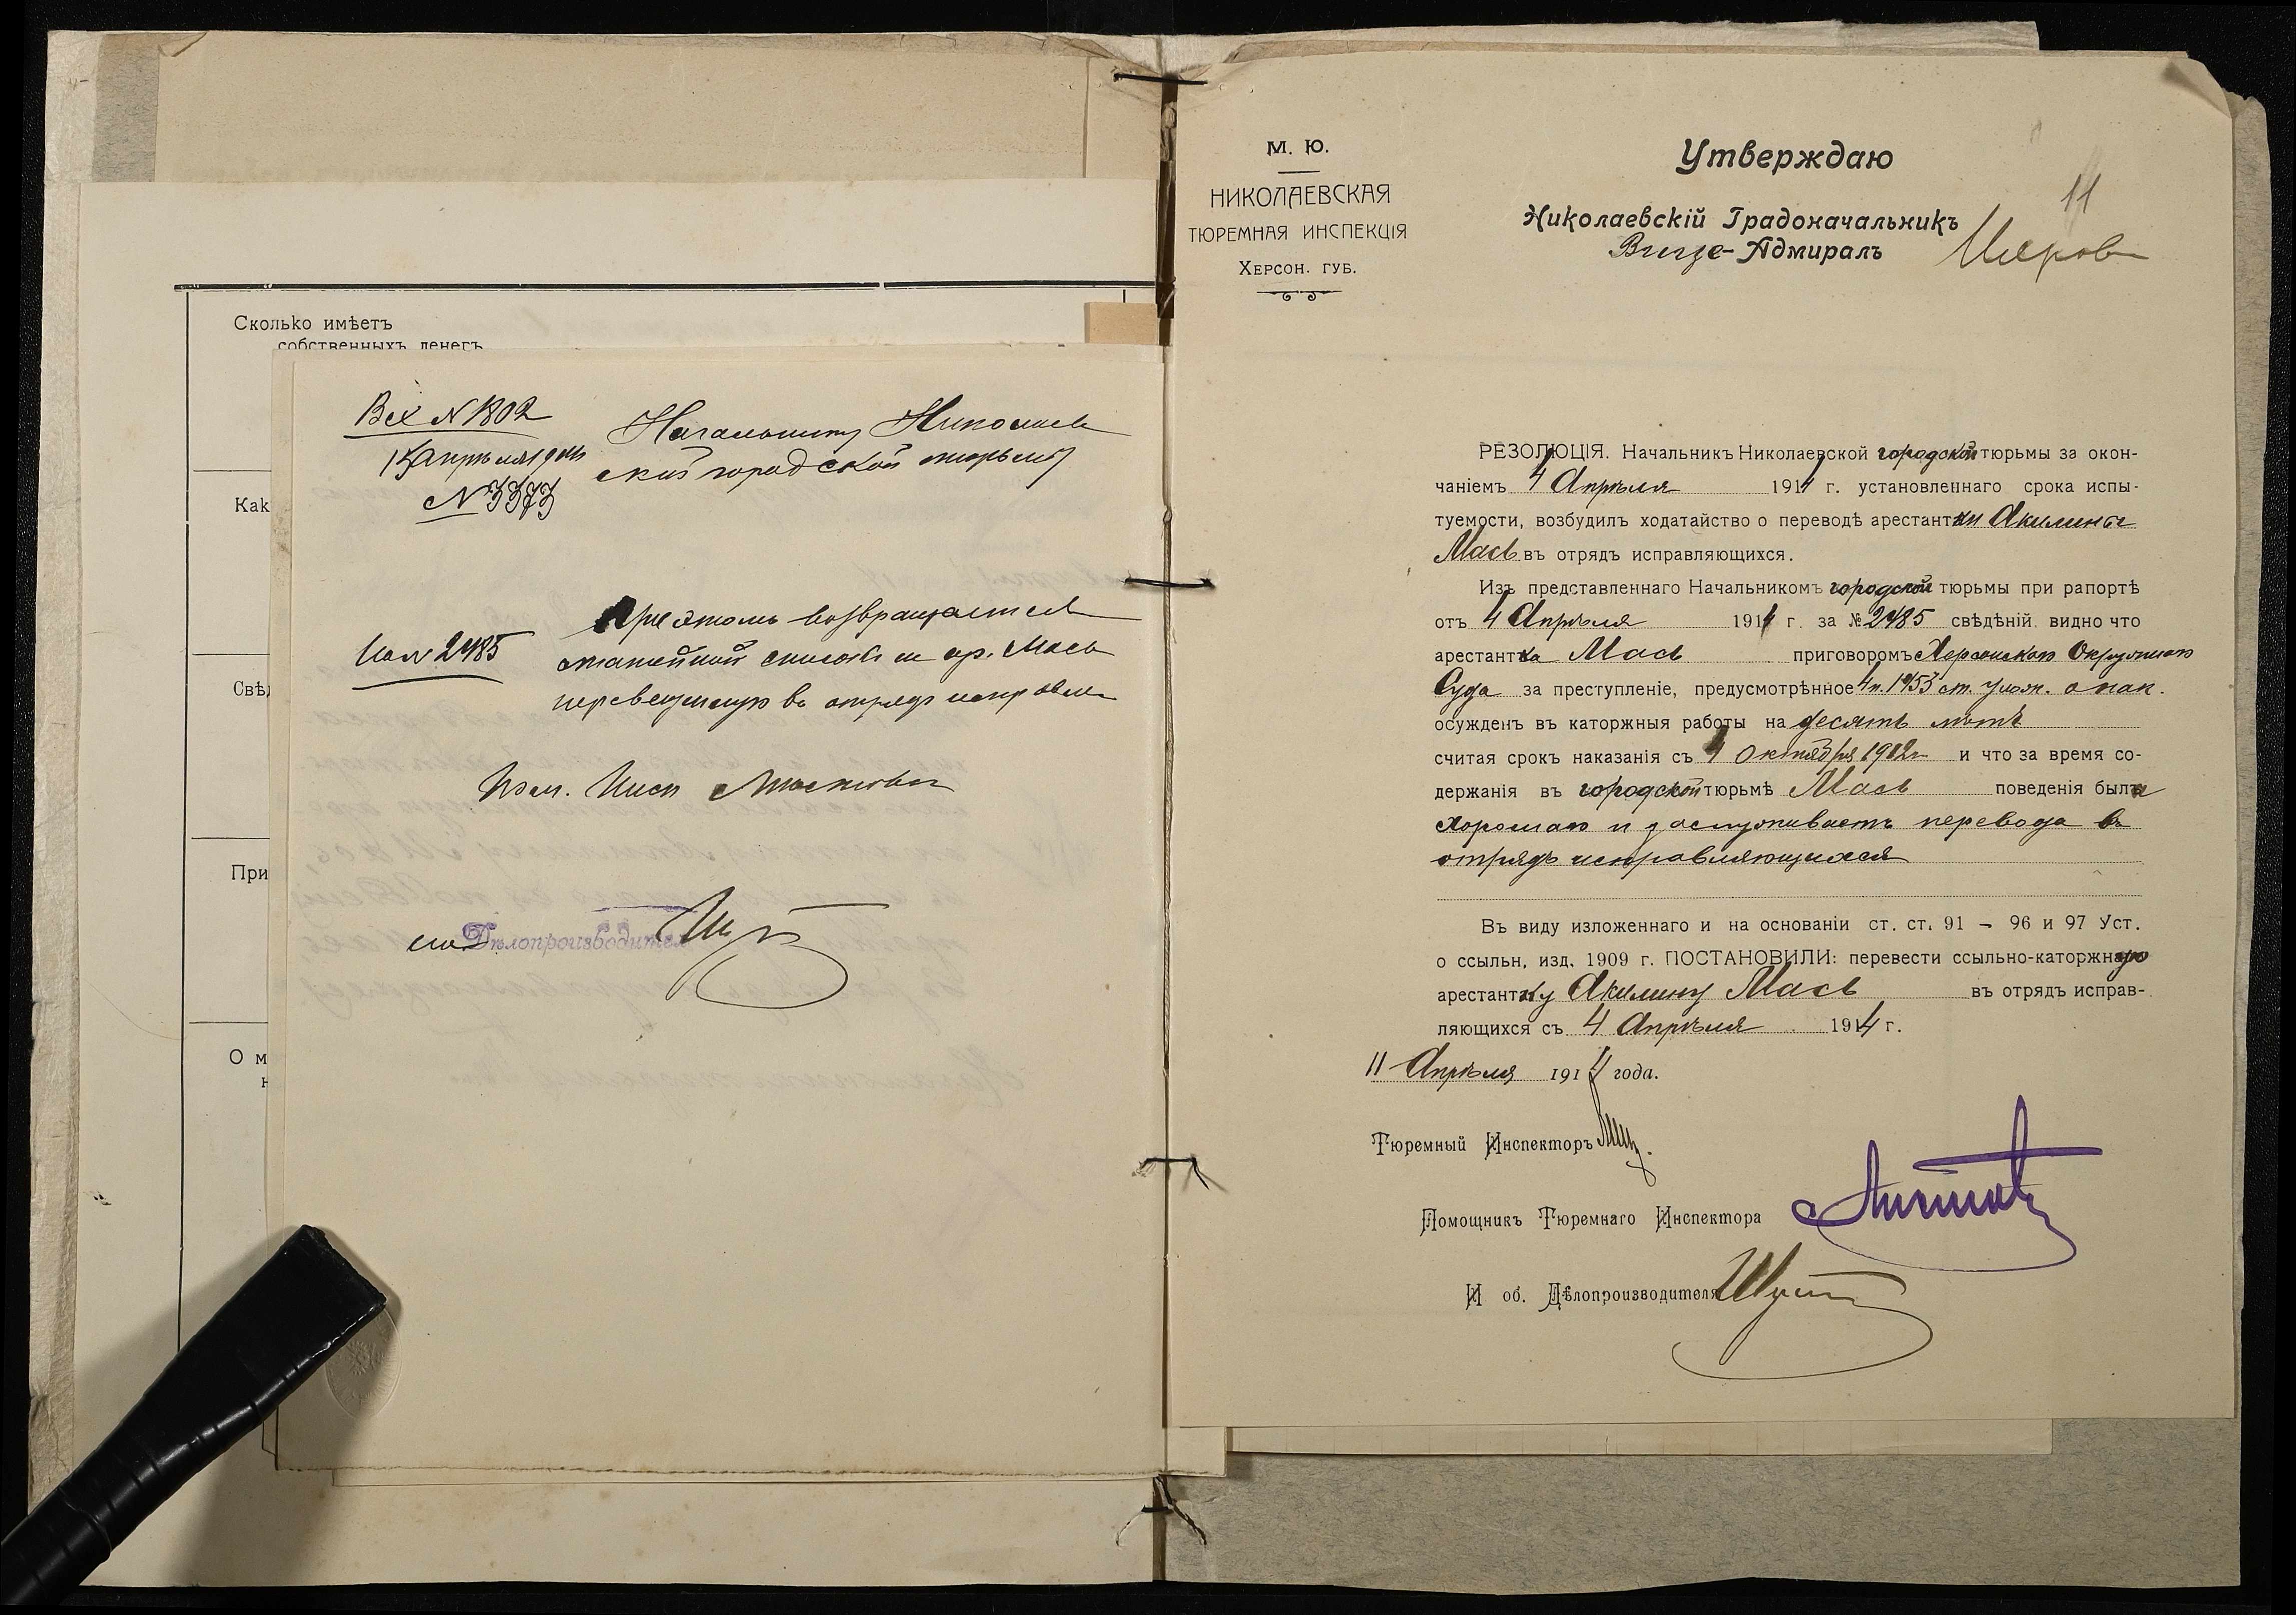 Сколько имѣетъ
собственныхъ денегъ
Как
Свѣд
При
О м
н
Вх N 1802
15 апрѣля 1914
N 3373
Начальнику Николаев
ской городской тюрьмы
На N 2485
При этомъ возвращается
статейный списокъ на ар. Мась
переведенную въ отрядъ исправл.
Пом. Инсп
Дѣлопроизводитель
М. Ю.
НИКОЛАЕВСКАЯ
ТЮРЕМНАЯ ИНСПЕКЦІЯ
ХЕРСОН. ГУБ.
Утверждаю
11
Николаевскій Градоначальникъ
Вице-Адмиралъ
РЕЗОЛЮЦІЯ. Начальникъ Николаевской городской тюрьмы за окон-
чаніемъ 4 Апрѣля 1914 г. установленнаго срока испы-
туемости, возбудилъ ходатайство о переводѣ арестантки Акилины
Мась въ отрядъ исправляющихся.
Изъ представленнаго Начальникомъ городской тюрьмы при рапортѣ
отъ 4 Апрѣля 1914 г. за № 2485 свѣдѣній видно что
арестантка Мась приговоромъ Херсонскаго Окружнаго
Суда за преступленіе, предусмотрѣнное 4 п. 1453 ст. улож. о нак.
осужденъ въ каторжныя работы на десять лѣтъ
считая срокъ наказанія съ 4 Октября 1912 г и что за время со-
держанія въ городской тюрьмѣ Мась поведенія была
хорошаго и заслуживаетъ перевода въ
отрядъ исправляющихся
Въ виду изложеннаго и на основаніи ст. ст. 91 – 96 и 97 Уст.
о ссыльн. изд. 1909 г. ПОСТАНОВИЛИ: перевести ссыльно-каторжную
арестантку Акилину Мась въ отрядъ исправ-
ляющихся съ 4 Апрѣля 1914 г.
11 Апрѣля 1914 года.
Тюремный Инспекторъ
Помощникъ Тюремнаго Инспектора
И об. Дѣлопроизводителя